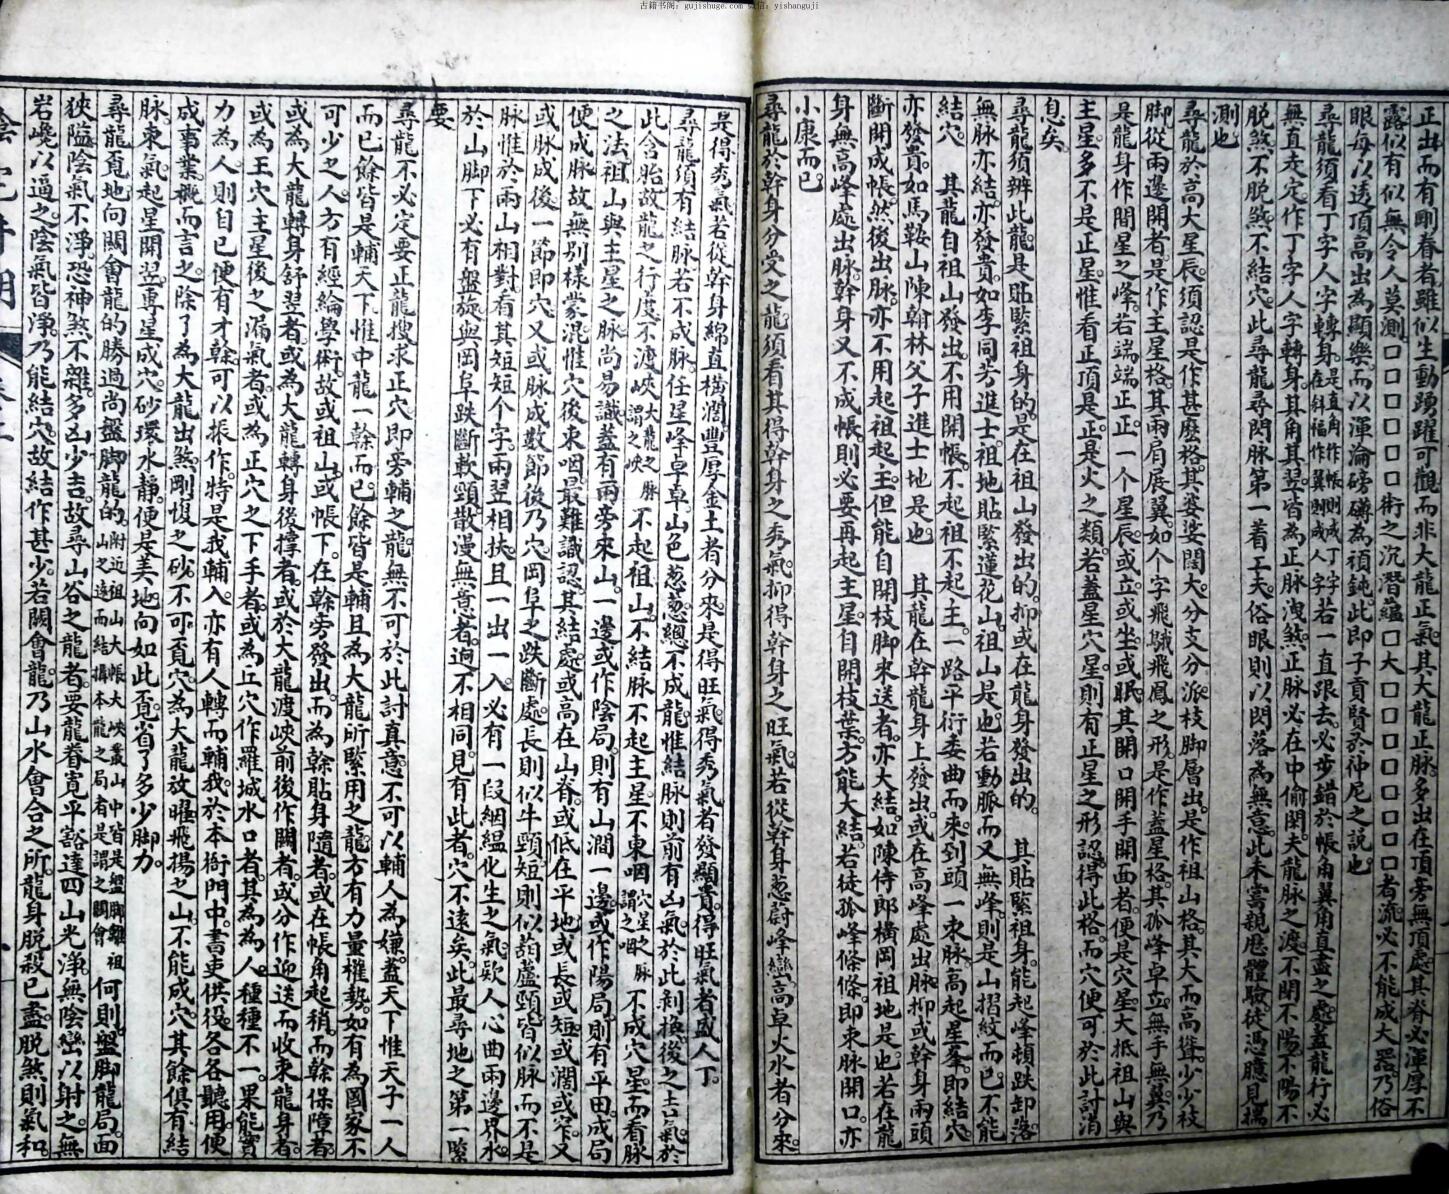 古籍书阁：gujishuge.com 微信：yishanguji
正出而有剛脊者雖似生動踴躍可觀而非大龍正氣其大龍正脉多出在頂旁無頂處其脊必渾厚不
露似有似無令人莫測口口口口口口術之沉潛蘊口大口口口口口口者流必不能成大器乃俗
眼每以透頂高出為顯樂而以渾淪磅礡為頑鈍此即子貢賢於仲尼之說也
尋龍須看丁字人字轉身是直角作帳則成丁字在斜福作翼則成人字若一直跟去必步錯於帳角翼角直盡之處蓋龍行必
無直走定作丁字人字轉身其角其翌皆為正脉洩煞正脉必在中偷閃夫龍脉之渡不閉不陽不陽不
脫煞不脫煞不結穴此尋龍尋閃脉第一着工夫俗眼則以閃落為無意此未嘗親歷體驗徒憑臆見揣
測也
尋龍於高大星辰須認是作甚麽格其婆娑闊大分支分派枝脚層出是作祖山格其大而高聳少少枝
脚從兩邊開者是作主星格其兩肩展翼如个字飛蛾飛鳳之形是作蓋星格其孤峰卓立無手無翼乃
是龍身作間星之峰若端端正正一个星辰或立或坐或眠其開口開手開面者便是穴星大抵祖山與
主星多不是正星惟看正頂是正是火之類若蓋星穴星則有正星之形認得此格而穴便可於此討消
息矣
尋龍須辨此龍是貼緊祖身的是在祖山發出的抑或在龍身發出的　其貼緊祖身能起峰頓跌卸落
無脉亦結亦發貴如李同芳進士祖地貼緊蓮花山祖山是也若動脈而又無峰則是山摺紋而已不能
結穴　其龍自祖山發出不用開帳不起祖不起主一路平衍委曲而來到頭一束脉高起星峯即結穴
亦發貴如馬鞍山陳翰林父子進士地是也　其龍在幹龍身上發出或在高峰處出脉抑或幹身兩頭
斷開成帳然後出脉亦不用起祖起主但能自開枝脚來送者亦大結如陳侍郎橫岡祖地是也若在龍
身無高峰處出脉幹身又不成帳則必要再起主星自開枝葉方能大結若徒孤峰條條即束脉開口亦
小康而已
尋龍於幹身分受之龍須看其得幹身之秀氣抑得幹身之旺氣若從幹身葱蔚峰巒高卓火水者分來
是得秀氣若從幹身綿直橫濶豐厚金土者分來是得旺氣得秀氣者發顯貴得旺氣者盛人丁
尋龍須有結脉若不成脉任星峰卓卓山色葱葱總不成龍惟結脉則前有凶氣於此剝換後之吉氣於
此含胎故龍之行度不渡峽大龍之脉謂之峽不起祖山不結脉不起主星不束咽穴星之脉謂之咽不成穴星而看脉
之法祖山與主星之脉尚易識蓋有兩旁來山一邊或作陰局則有山澗一邊或作陽局則有平田成局
便成脉故無別樣蒙混惟穴後束咽最難識認其結處或高在山脊或低在平地或長或短或濶或窄又
或脉成後一節即穴又或脉成數節後乃穴岡阜之跌斷處長則似牛頸短則似葫蘆頸皆似脉而不是
脉惟於兩山相對看其短短个字兩翌相扶且一出一入必有一段絪緼化生之氣欵人心曲兩邊界水
於山脚下必有盤旋與岡阜跌斷軟頸散漫無意者迥不相同見有此者穴不遠矣此最尋地之第一緊
要
尋龍不必定要正龍搜求正穴即旁輔之龍無不可於此討真意不可以輔人為嫌蓋天下惟天子一人
而已餘皆是輔天下惟中龍一榦而已餘皆是輔且為大龍所緊用之龍方有力量權勢如有為國家不
可少之人方有經綸學術故或祖山或帳下在榦旁發出而為榦貼身隨者或在帳角起稍而榦保障者
或為大龍轉身舒翌者或為大龍轉身後撑者或於大龍渡峽前後作關者或分作迎送而收束龍身者
或為王穴主星後之漏氣者或為正穴之下手者或為丘穴作羅城水口者其為為人種種不一果能實
力為人則自已便有才榦可以振作特是我輔入亦有人轉而輔我於本衙門中書吏供役各各聽用便
成事業概而言之除了為大龍出煞剛愎之砂不可覓穴為大龍放曜飛揚之山不能成穴其餘俱有結
脉束氣起星開翌專星成穴砂環水靜便是美地向如此覓省了多少脚力
尋龍覓地向關會龍的勝過尚盤脚龍的附近祖山大帳大峽叢山中皆是盤脚離祖山之遠而結攝本龍之局有是謂之關會何則盤脚龍局面
狹隘陰氣不淨恐神煞不雜多凶少吉故尋山谷之龍者要龍脊寬平豁達四山光淨無陰巒以射之無
岩嶢以逼之陰氣皆淨乃能結穴故結作甚少若關會龍乃山水會合之所龍身脫殺已盡脫煞則氣和